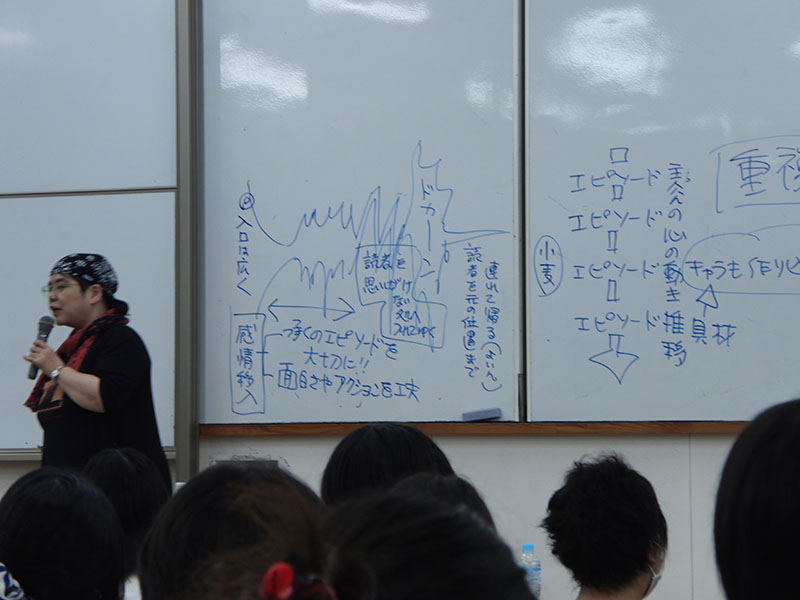 ◎入口は広く
感情移入
承くのエピソードを
大切に!!
面白さやアクションを工夫
読者を
思いがけ
ない所へ
つれてゆく
ドカーン!
連れて帰る(よいん)
読者を元の位置まで
小麦
エピソード
エピソード
エピソード
エピソード
主人公の心の動き推移
重視
キャラも作り込
具材